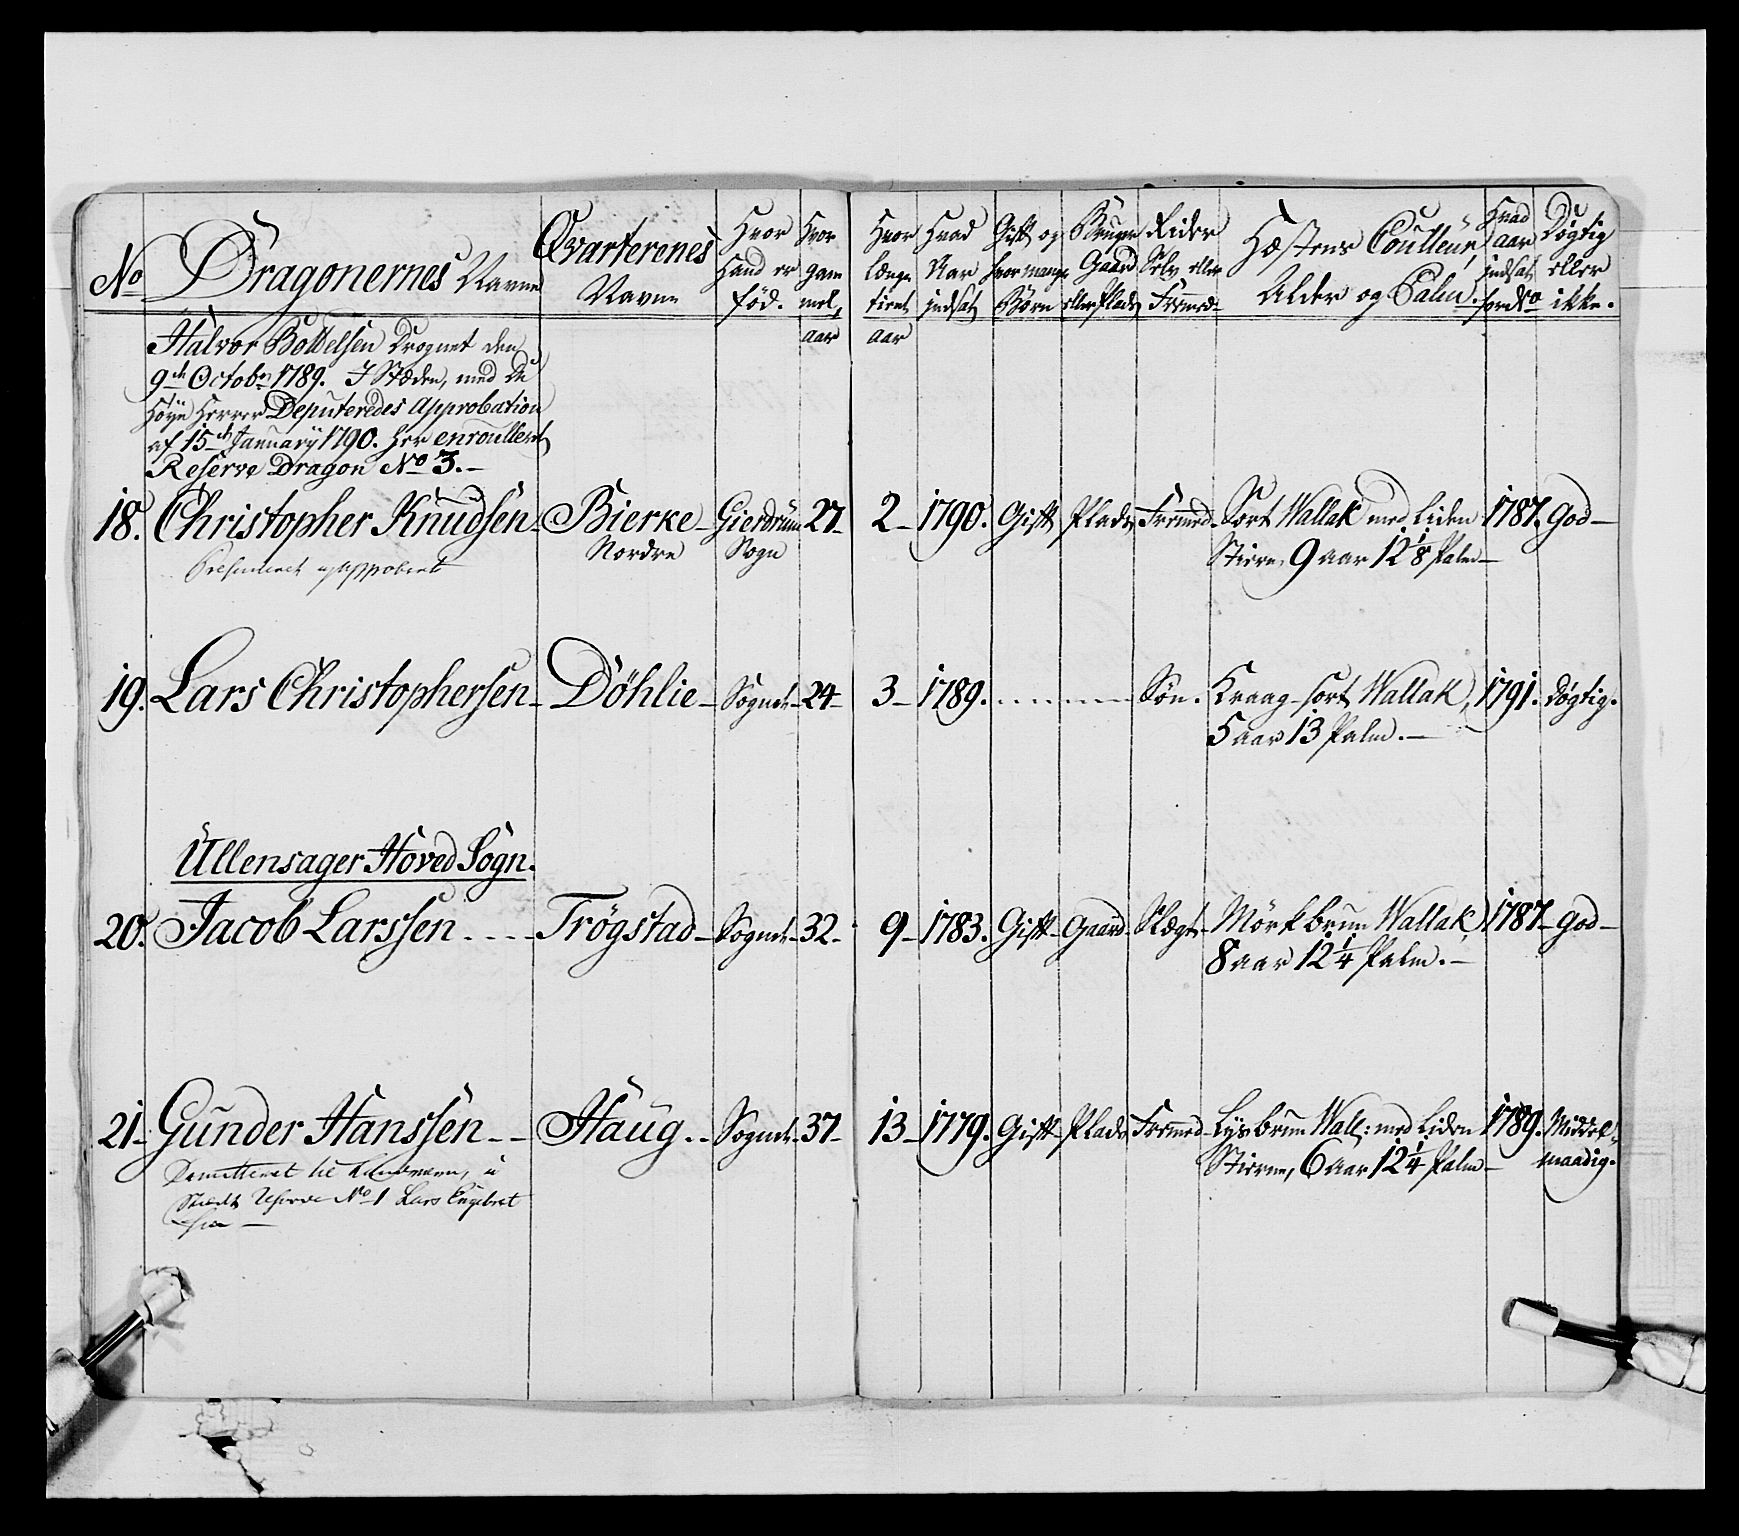 No Dragonernes Navne
Qvarterenes Navne
Hvor Hand er Föd.
Hvor gam mel, aar
Hvor længe tient aar
Hvad Aar jndsat
Gift og hvor mange Börn
Bruger Gaard eller Plads
Rider Selv eller Fremed
Hæstens Coulleur, Alder og Palm.
Hvad aar jndsat
Døgtig eller ikke.
Halvor Bottelsen Drognet den
9de Octobr 1789. I Stæden, med De
Höye Herrer Deputeredes Approbation
af 15de January 1790. her enroulleret
Reserve Dragon No 3.
18. Christopher Knudsen Bierke Gierdrum 27 2 1790. Gift Plads Fremed Sort Wallak med Liden 1787. God
Nordre Sogn Stierne, 9 aar 12 1/8 Palm
Presenteret og approbert
19. Lars Christophersen Döhlie Sognet 24 3 1789. Sön. Kraag-sort Wallak, 1791. Døgtig.
5 aar 13 Palm.
Ullensager Hoved Sogn.
20. Jacob Larssen Trögstad Sognet 32 9 1783. Gift Gaard Slægt Mörk brun Wallak, 1787 God
8 aar 12 1/4 Palm.
21 Gunder Hanssen Haug Sognet 37 13 1779. Gift Plads Fremed Lys brun Wall: med Liden 1789. Middel
Stierne, 6 aar 12 1/4 Palm maadig.
Demitteret til Landeværn, i
Stædet Reserve No 1 Lars Engebret
sen